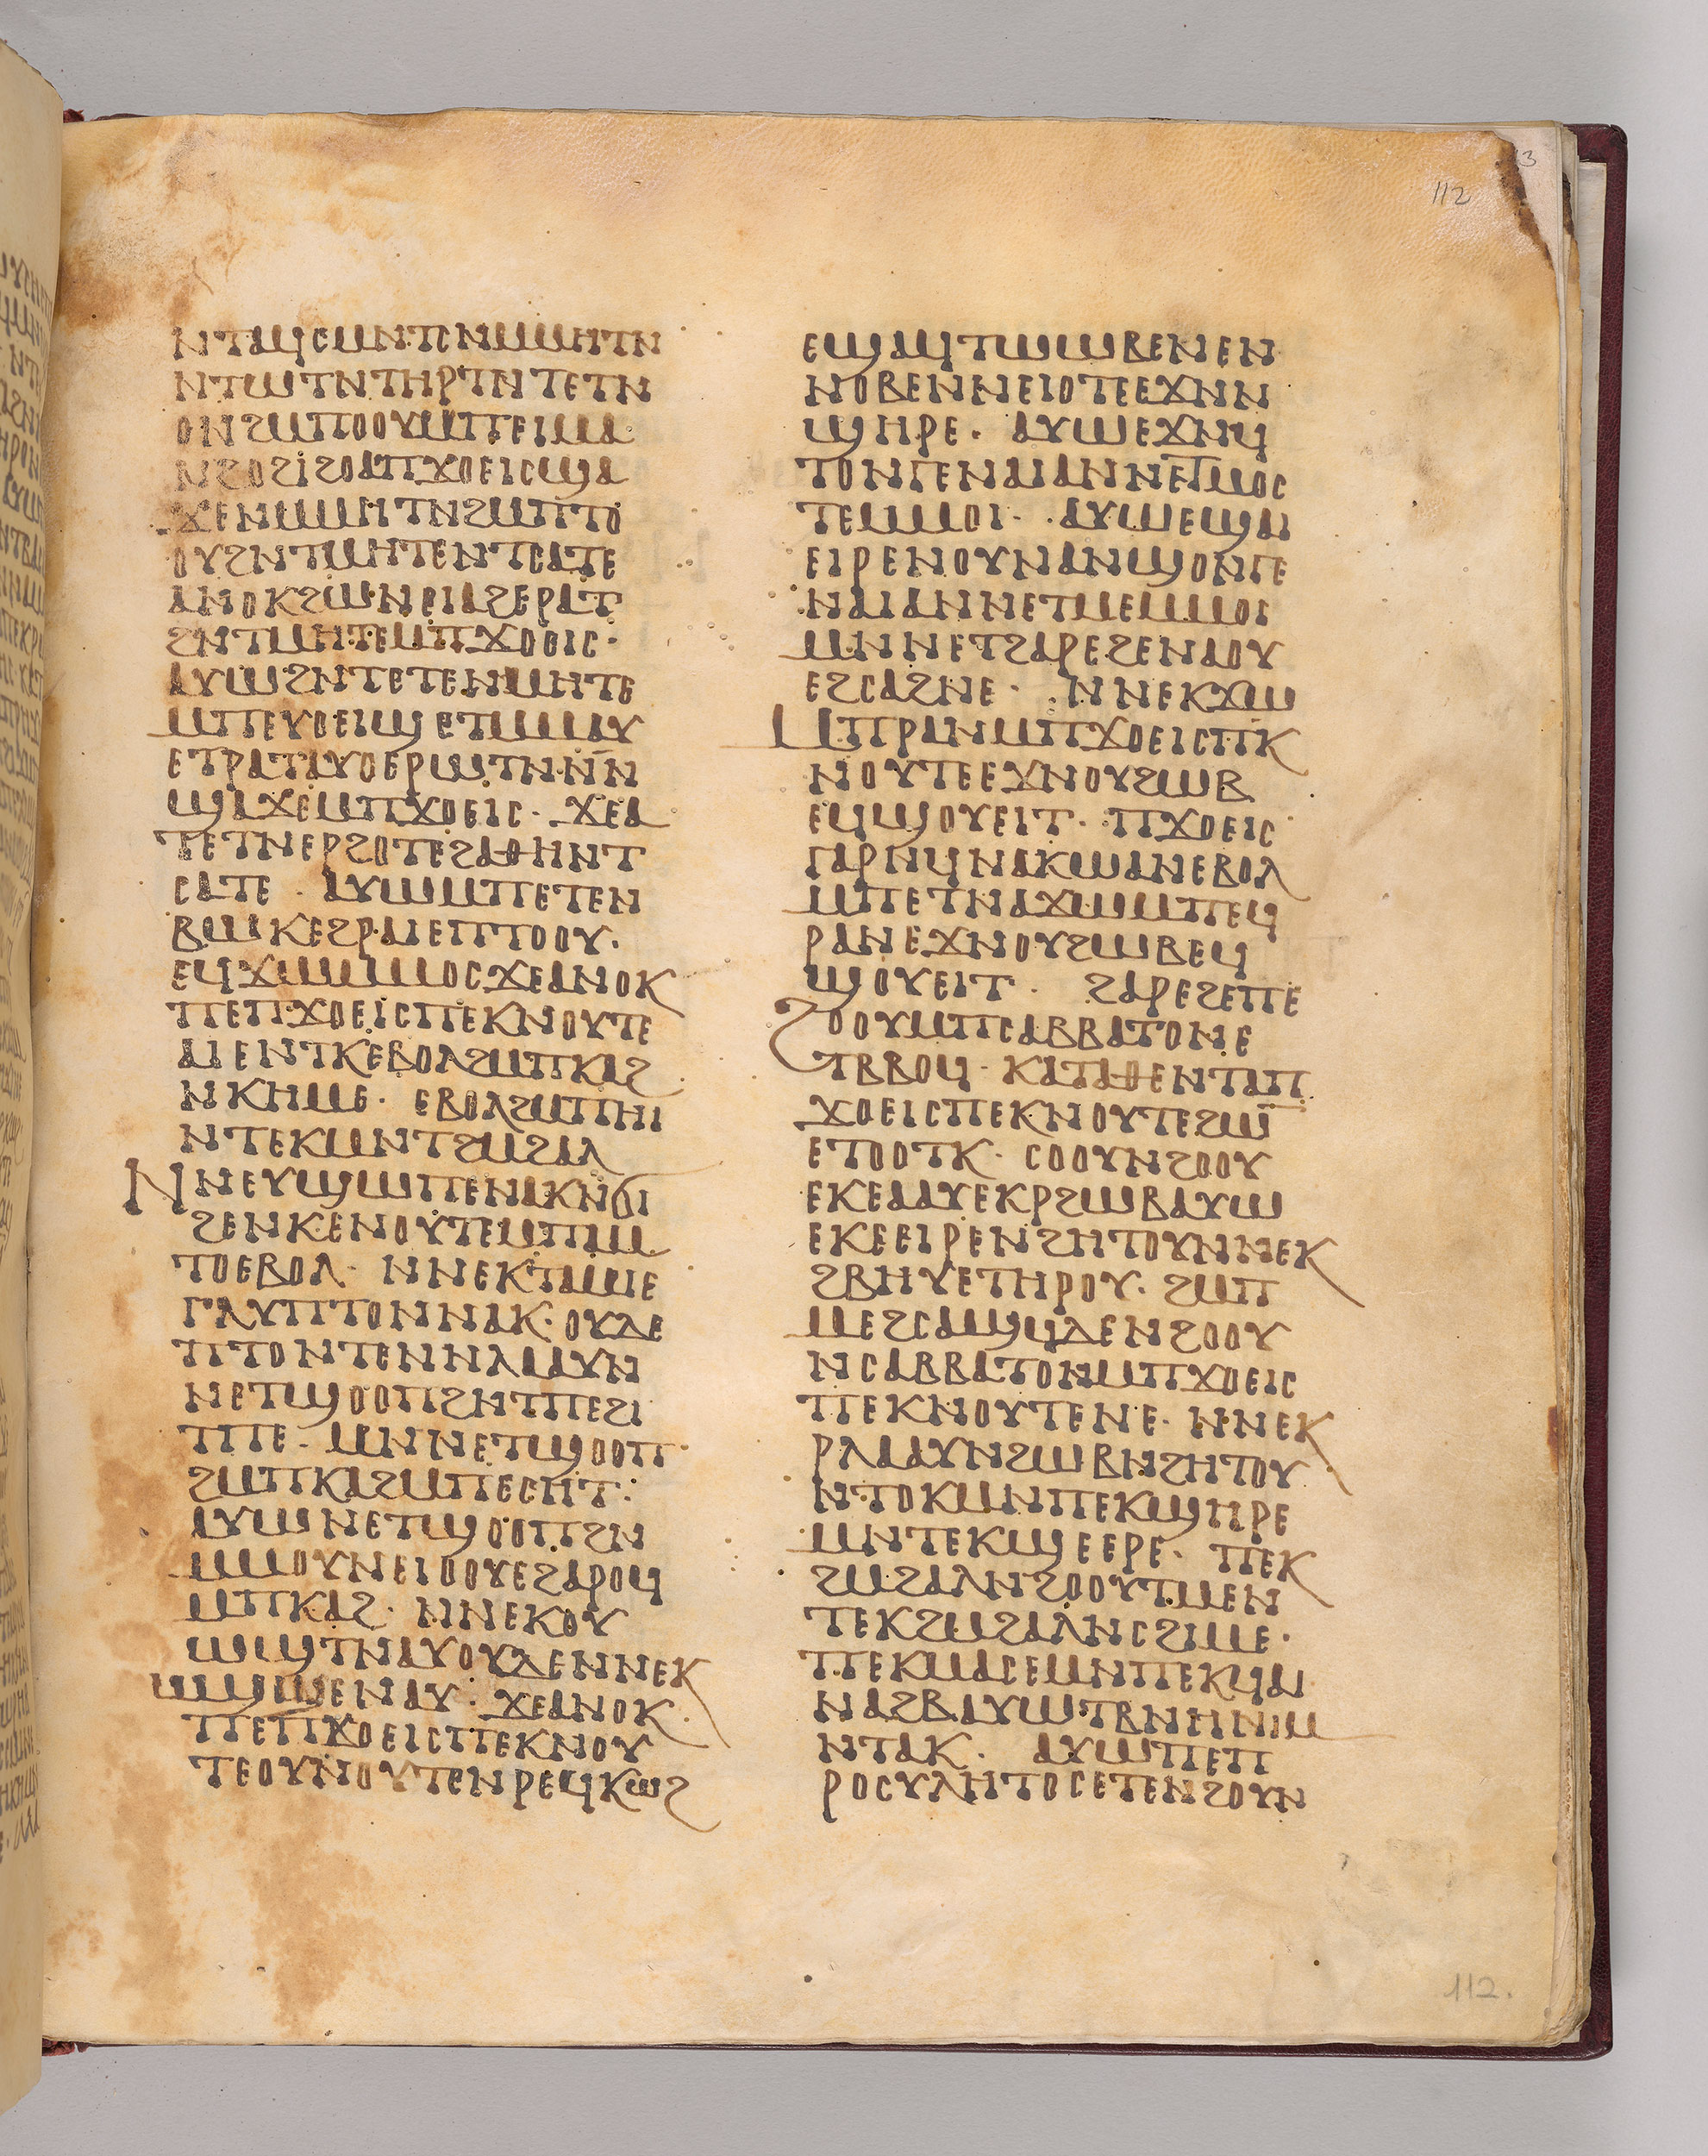 112
ⲛⲧⲁϥⲥⲙⲛⲧⲥⲛⲙⲙⲏⲧⲛ
ⲛⲧⲱⲧⲛⲧⲏⲣⲧⲛⲧⲉⲧⲛ
ⲟⲛϩⲙⲡⲟⲟⲩⲙⲡⲉⲓⲙⲁ
ⲛϩⲟϩⲓϩⲟⲁⲡϫⲟⲉⲓⲥϣⲁ
ϫⲉⲛⲙⲙⲏⲧⲛϩⲙⲡⲧⲟ
ⲟⲩϩⲛⲧⲙⲏⲧⲉⲛⲧⲥⲁⲧⲉ
ⲁⲛⲟⲕϩⲱⲛⲉⲓⲁϩⲉⲣⲁⲧ
ϩⲛⲧⲙⲏⲧⲉⲙⲡϫⲟⲉⲓⲥ·
ⲁⲩⲱϩⲛⲧⲉⲧⲉⲛⲙⲏⲧⲉ
ⲙⲡⲉⲩⲟⲉⲓϣⲉⲧⲙⲙⲁⲩ
ⲉⲧⲣⲁⲧⲁⲩⲟⲉⲣⲱⲧⲛⲛ̄ⲛ
ϣⲁϫⲉⲙⲡϫⲟⲉⲓⲥ· ϫⲉⲁ
ⲧⲉⲧⲛⲉⲣϩⲟⲧⲉϩⲁⲑⲏⲛⲧ
ⲥⲁⲧⲉ · ⲁⲩⲱⲙⲡⲉⲧⲉⲛ
ⲃⲱⲕⲉϩⲣⲁⲓⲉⲡⲧⲟⲟⲩ·
ⲉϥϫⲱⲙⲙⲟⲥϫⲉⲁⲛⲟⲕ
ⲡⲉⲡϫⲟⲉⲓⲥⲡⲉⲕⲛⲟⲩⲧⲉ
ⲁⲓⲉⲛⲧⲕⲉⲃⲟⲗϩⲙⲡⲕⲁϩ
ⲛⲕⲏⲙⲉ· ⲉⲃⲟⲗϩⲙⲡⲏⲓ
ⲛⲧⲉⲕⲙⲛⲧϩⲙϩⲁⲗ
ⲛⲛⲉⲩϣⲱⲡⲉⲛⲁⲕⲛϭⲓ
ϩⲉⲛⲕⲉⲛⲟⲩⲧⲉⲙⲡⲙ
ⲧⲟⲉⲃⲟⲗ· ⲛⲛⲉⲕⲧⲁⲙⲓⲉ
ⲅⲗⲩⲡⲧⲟⲛⲛⲁⲕ· ⲟⲩⲇⲉ
ⲡⲧⲟⲛⲧⲉⲛⲛⲗⲁⲁⲩⲛ
ⲛⲉⲧϣⲟⲟⲡϩⲛⲧⲡⲉϩⲓ
ⲧⲡⲉ· ⲙⲛⲛⲉⲧϣⲟⲟⲡ
ϩⲙⲡⲕⲁϩⲙⲡⲉⲥⲏⲧ:
ⲁⲩⲱⲛⲉⲧϣⲟⲟⲡϩⲛ
ⲙⲙⲟⲩⲛⲉⲓⲟⲟⲩⲉϩⲁⲣⲟϥ
ⲙⲡⲕⲁϩ· ⲛⲛⲉⲕⲟⲩ
ⲱϣⲧⲛⲁⲩⲟⲩⲇⲉⲛⲛⲉⲕ
ϣⲙϣⲉⲛⲁⲩ: ϫⲉⲁⲛⲟⲕ
ⲡⲉⲡϫⲟⲉⲓⲥⲡⲉⲕⲛⲟⲩ
ⲧⲉⲟⲩⲛⲟⲩⲧⲉⲛⲣⲉϥⲕⲱϩ
ⲉϣⲁϥⲧⲱⲱⲃⲉⲛⲉⲛ
ⲛⲟⲃⲉⲛⲛⲉⲓⲟⲧⲉⲉϫⲛⲛ
ϣⲏⲣⲉ· ⲁⲩⲱⲉϫⲛϥ
ⲧⲟⲛⲅⲉⲛⲁⲓⲁⲛⲛⲉⲧⲙⲟⲥ
ⲧⲉⲙⲙⲟⲓ· ⲁⲩⲱⲉϣⲁⲓ
ⲉⲓⲣⲉⲛⲟⲩⲛⲁⲛϣⲟⲛⲅⲉ
ⲛⲁⲓⲁⲛⲛⲉⲧⲙⲉⲙⲙⲟⲓ
ⲙⲛⲛⲉⲧϩⲁⲣⲉϩⲉⲛⲁⲟⲩ
ⲉϩⲥⲁϩⲛⲉ· ⲛⲛⲉⲕϫⲱ
ⲙⲡⲣⲁⲛⲙⲡϫⲟⲉⲓⲥⲡⲕ
ⲛⲟⲩⲧⲉⲉϫⲛⲟⲩϩⲱⲃ
ⲉϥϣⲟⲩⲉⲓⲧ· ⲡϫⲟⲉⲓⲥ
ⲅⲁⲣⲛϥⲛⲁⲕⲱⲁⲛⲉⲃⲟⲗ
ⲙⲡⲉⲧⲛⲁϫⲱⲙⲡⲉϥ
ⲣⲁⲛⲉϫⲛⲟⲩϩⲱⲃⲉϥ
ϣⲟⲩⲉⲓⲧ· ϩⲁⲣⲉϩⲉⲡⲉ
ϩⲟⲟⲩⲙⲡⲥⲁⲃⲃⲁⲧⲟⲛⲉ
ⲧⲃⲃⲟϥ· ⲕⲁⲧⲁⲑⲉⲛⲧⲁⲡ
ϫⲟⲉⲓⲥⲡⲉⲕⲛⲟⲩⲧⲉϩⲱⲛ
ⲉⲧⲟⲟⲧⲕ· ⲥⲟⲟⲩⲛϩⲟⲟⲩ
ⲉⲕⲉⲁⲁⲩⲉⲕⲣϩⲱⲃⲁⲩⲱ
ⲉⲕⲉⲉⲓⲣⲉⲛϩⲏⲧⲟⲩⲛⲛⲉⲕ
ϩⲃⲏⲩⲉⲧⲏⲣⲟⲩ· ϩⲙⲡ
ⲙⲉϩⲥⲁϣϥⲇⲉⲛϩⲟⲟⲩ
ⲛⲥⲁⲃⲃⲁⲧⲟⲛⲙⲡϫⲟⲉⲓⲥ
ⲡⲉⲕⲛⲟⲩⲧⲉⲛⲉ· ⲛⲛⲉⲕ
ⲣⲗⲁⲁⲩⲛϩⲱⲃⲛϩⲏⲧⲟⲩ
ⲛⲧⲟⲕⲙⲛⲡⲉⲕϣⲏⲣⲉ
ⲙⲛⲧⲉⲕϣⲉⲉⲣⲉ· ⲡⲉⲕ
ϩⲙϩⲁⲗⲛϩⲟⲟⲩⲧⲙⲉⲛ
ⲧⲉⲕϩⲙϩⲁⲗⲛⲥϩⲓⲙⲉ·
ⲡⲉⲕⲙⲁⲥⲉⲙⲛⲡⲉⲕϥⲁⲓ
ⲛⲁϩⲃⲁⲩⲱⲧⲃⲛⲏⲛⲓⲙ
ⲛⲧⲁⲕ· ⲁⲩⲱⲡⲉⲡ
ⲣⲟⲥⲩⲗⲏⲧⲟⲥⲉⲧⲉⲛϩⲟⲩⲛ
112.